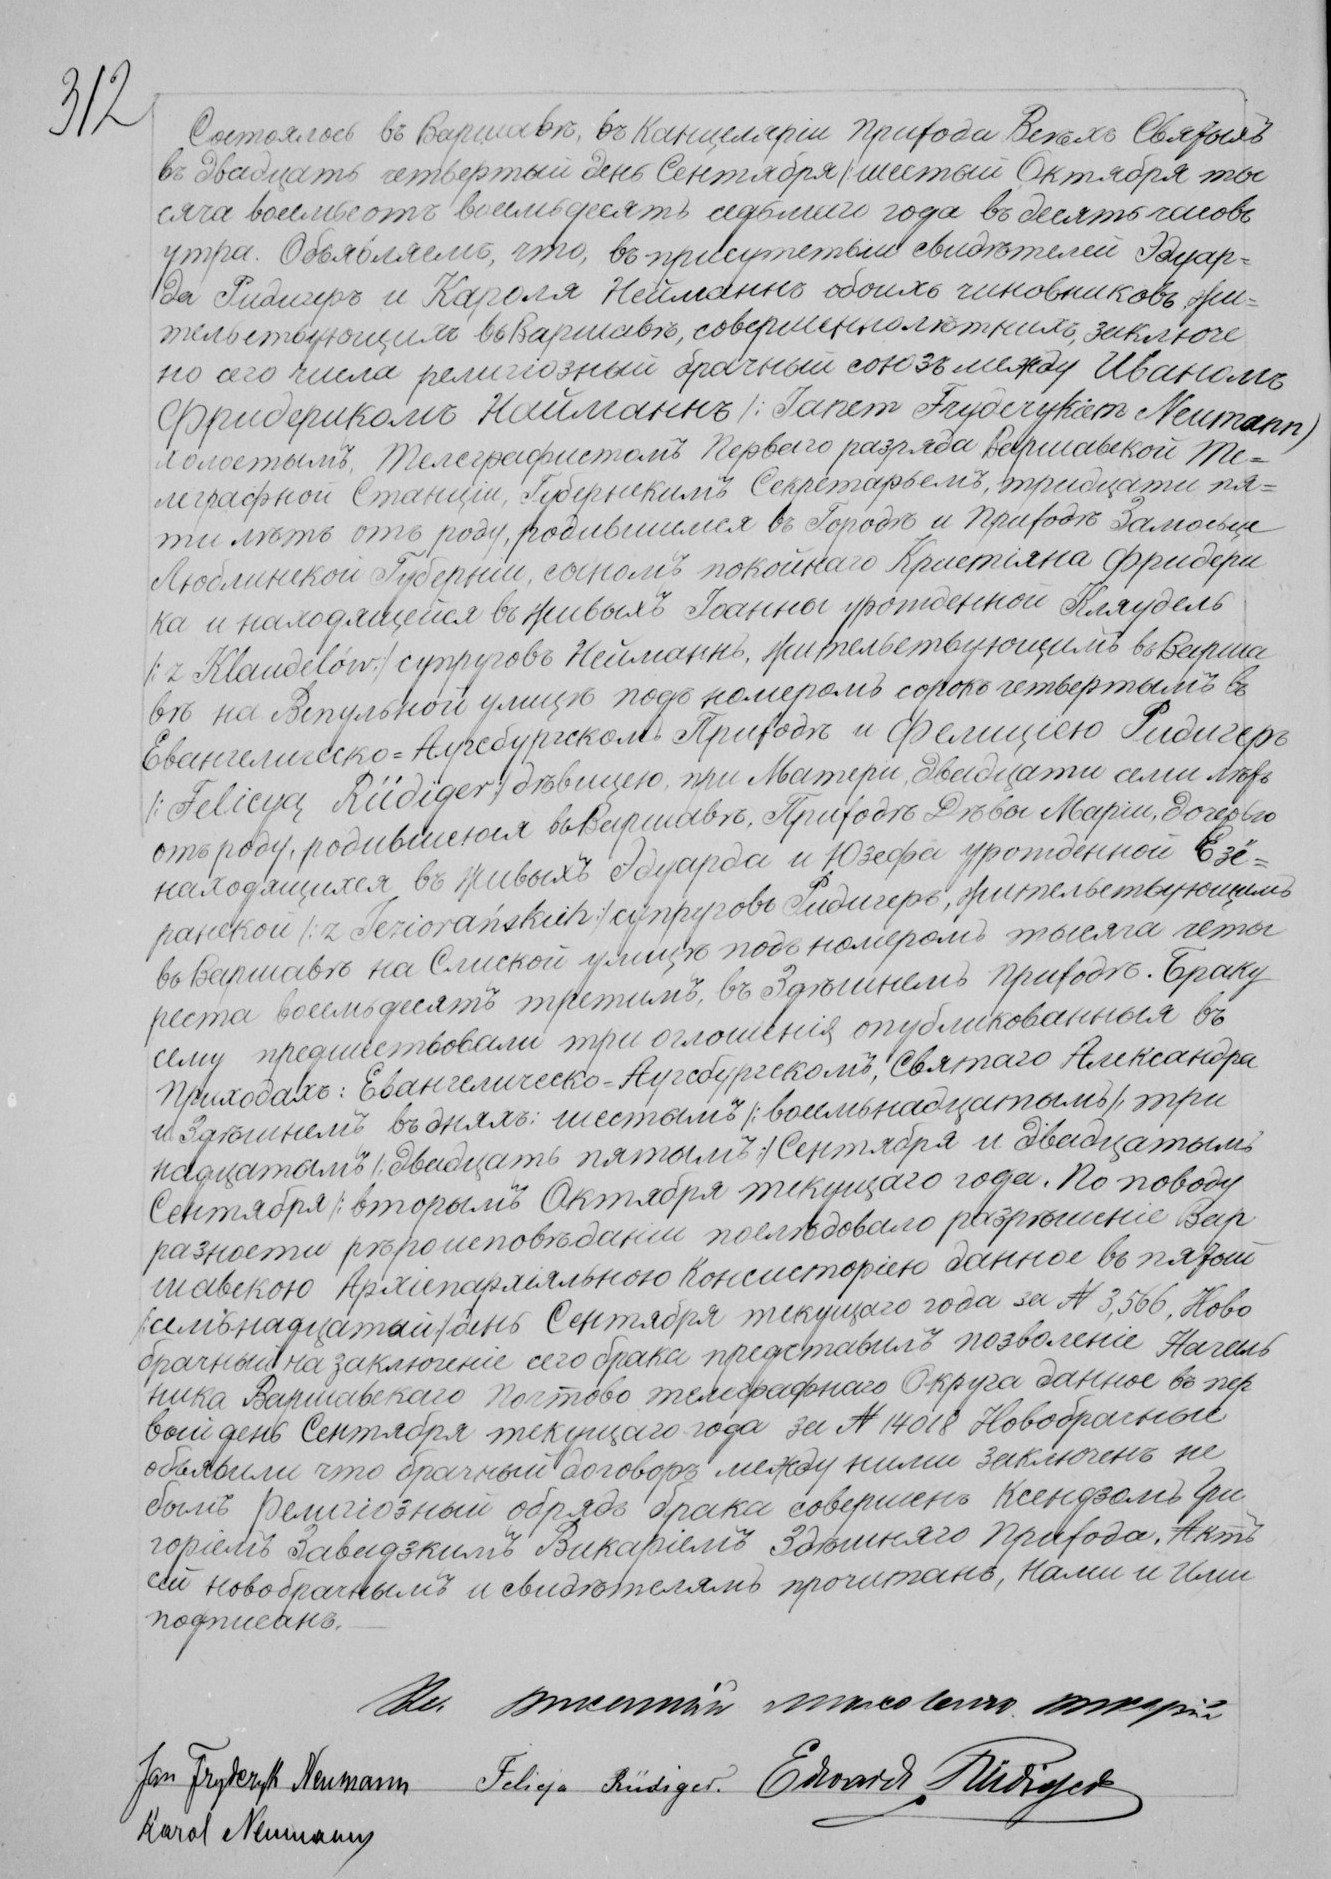 312
Состоялось въ Варшавѣ, въ Канцеляріи Прихода Всѣхъ Святыхъ
въ двадцать четвертый день Сентября /: шестый Октября ты
сяча восемьсотъ восемьдесятъ седьмаго года въ десять часовъ
утра. Объявляемъ, что, въ присутствіи свидѣтелей Эдуар=
да Ридигеръ и Кароля Нейманнъ обоихъ чиновниковъ жи=
тельствующихъ въ Варшавѣ, совершеннолѣтнихъ, заключе
но сего числа религіозный брачный союзъ между Иваномъ
Фридерикомъ Найманнъ /: Janem Fryderykiem Neumann)
холостымъ, Телеграфистомъ Перваго разряда Варшавской Те=
леграфной Станціи, Губернскимъ Секретарьемъ, тридцати пя=
ти лѣтъ отъ роду, родившимся въ Городѣ и Приходѣ Замосьце
Люблинской Губерніи, сыномъ покойнаго Кристіяна Фридери
ка и находящейся въ живыхъ Іоанны урожденной Кляудель
/: z Klaudelów :/ супруговъ Нейманнъ, жительствующимъ въ Варша
вѣ на Вспульной улицѣ подъ номеромъ сорокъ четвертымъ въ
Евангелическо=Аугсбургскомъ Приходѣ и Фелиціею Ридигеръ
/: Felicyą Rüdiger :/ дѣвицею, при Матери, двадцати семи лѣтъ
отъ роду, родившеюся въ Варшавѣ, Приходѣ Дѣвы Маріи, дочерью
находящихся въ живыхъ Эдуарда и Юзефа урожденной Езё=
ранской /: z Jeziorańskich :/ супруговъ Ридигеръ, жительствующимъ
въ Варшавѣ на Слиской улицѣ подъ номеромъ тысяча четы
реста восемьдесятъ третимъ, въ Здѣшнемъ Приходѣ. Браку
сему предшествовали три оглошенія опубликованныя въ
Приходахъ: Евангелическо=Аугсбургскомъ, Святаго Александра
и Здѣшнемъ въ дняхъ: шестымъ /: восемьнадцатымъ /, три
надцатымъ /: двадцать пятымъ :/ Сентября и двадцатымъ
Сентября /: вторымъ Октября текущаго года. По поводу
разности вѣроисповѣданіи послѣдовало разрѣшеніе Вар
шавскою Архіепархіяльною Консисторіею данное въ пятый
/: семьнадцатый :/ день Сентября текущаго года за № 3,566, Ново
брачный на заключеніе сего брака представилъ позволеніе Началь
ника Варшавскаго Почтово телеграфнаго Округа данное въ пер
вый день Сентября текущаго года за № 14018 Новобрачные
объявили что брачный договоръ между ними заключенъ не
былъ Религіозный обрядъ брака совершенъ Ксендзомъ Гри
горіемъ Завадзкимъ Викаріемъ Здѣшняго Прихода. Актъ
сей новобрачнымъ и свидѣтелямъ прочитанъ, Нами и Ими
подписанъ.
Jan Fryderyk Neumann Felicja Rüdiger. Edward Rüdiger
Karol Neumann